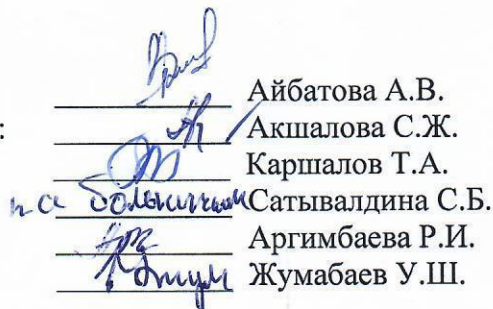 Айбатова А.В.
: Акшалова С.Ж.
Каршалов Т.А.
на больничном Сатывалдина С.Б.
Аргимбаева Р.И.
Жумабаев У.Ш.